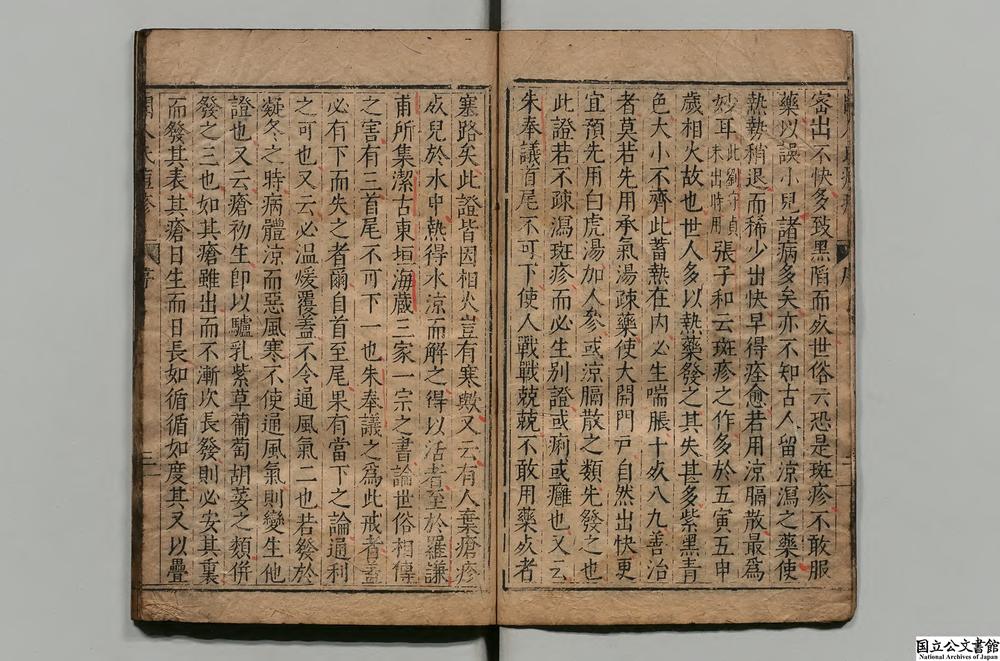 密出不快多致黑陷而死世俗云恐是斑疹不敢服
藥以誤小兒諸病多矣亦不知古人留涼瀉之藥使
熱勢稍退而稀少出快早得痊愈若用涼膈散最爲
妙耳此劉守貞未出時用張子和云斑疹之作多於五寅五申
歲相火故也世人多以熱藥發之其失甚多紫黑青
色大小不齊此蓄熱在內必生喘脹十死八九善治
者莫若先用承氣湯疎藥使大開門戸自然出快更
宜預先用白虎湯加人參或涼膈散之類先發之也
此證若不疎瀉斑疹而必生別證或痢或癰也又云
朱奉議首尾不可下使人戰戰兢兢不敢用藥死者
塞路矣此證皆因相火豈有寒歟又云有人棄瘡疹
死兒於水中熱得水涼而解之得以活者至於羅謙
甫所集潔古東垣海藏三家一宗之書論世俗相傳
之害有三首尾不可下一也朱奉議之爲此戒者蓋
必有下而失之者爾自首至尾果有當下之論通利
之可也又云必溫煖覆蓋不令通風氣二也若發於
凝冬之時病體涼而惡風寒不使通風氣則變生他
證也又云瘡初生即以驢乳紫草葡萄胡荽之類併
發之三也如其瘡雖出而不漸次長發則必安其裏
而發其表其瘡日生而日長如循循如度其又以疊
序
二
国立公文書館
National Archives of Japan